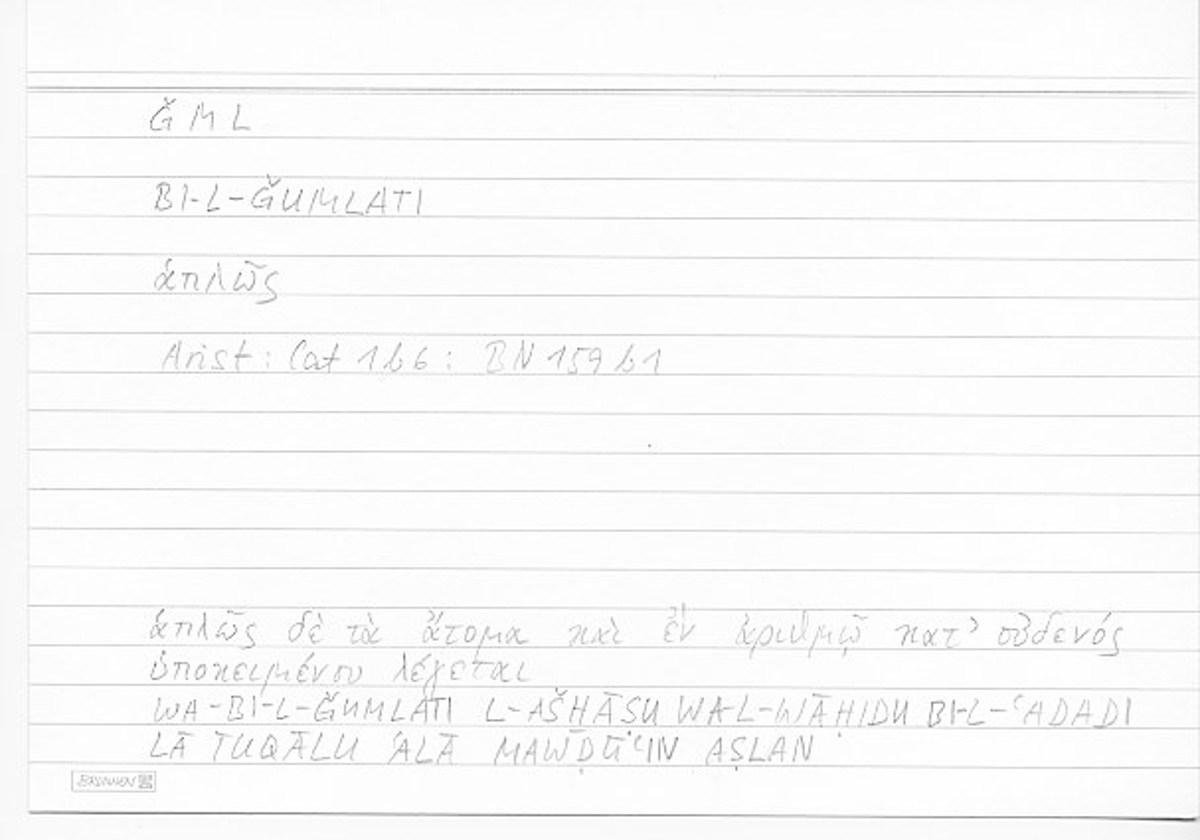 ǦML
BI-L-ǦUMLATI
ἁπλῶς
Arist: Cat 1b6: BN 159b1
ἁπλῶς δὲ τὰ ἄτομα καὶ ἓν ἀριθμῷ κατ’ οὐδενός
ὑποκειμένου λέγεται
WA-BI-L-ǦUMLATI L-AŠHĀSU WA-L-WĀḤIDU BI-L-ʿADADI
LĀ TUQĀLU ʿALĀ MAWḌŪʿIN AṢLAN
BRUNNEN